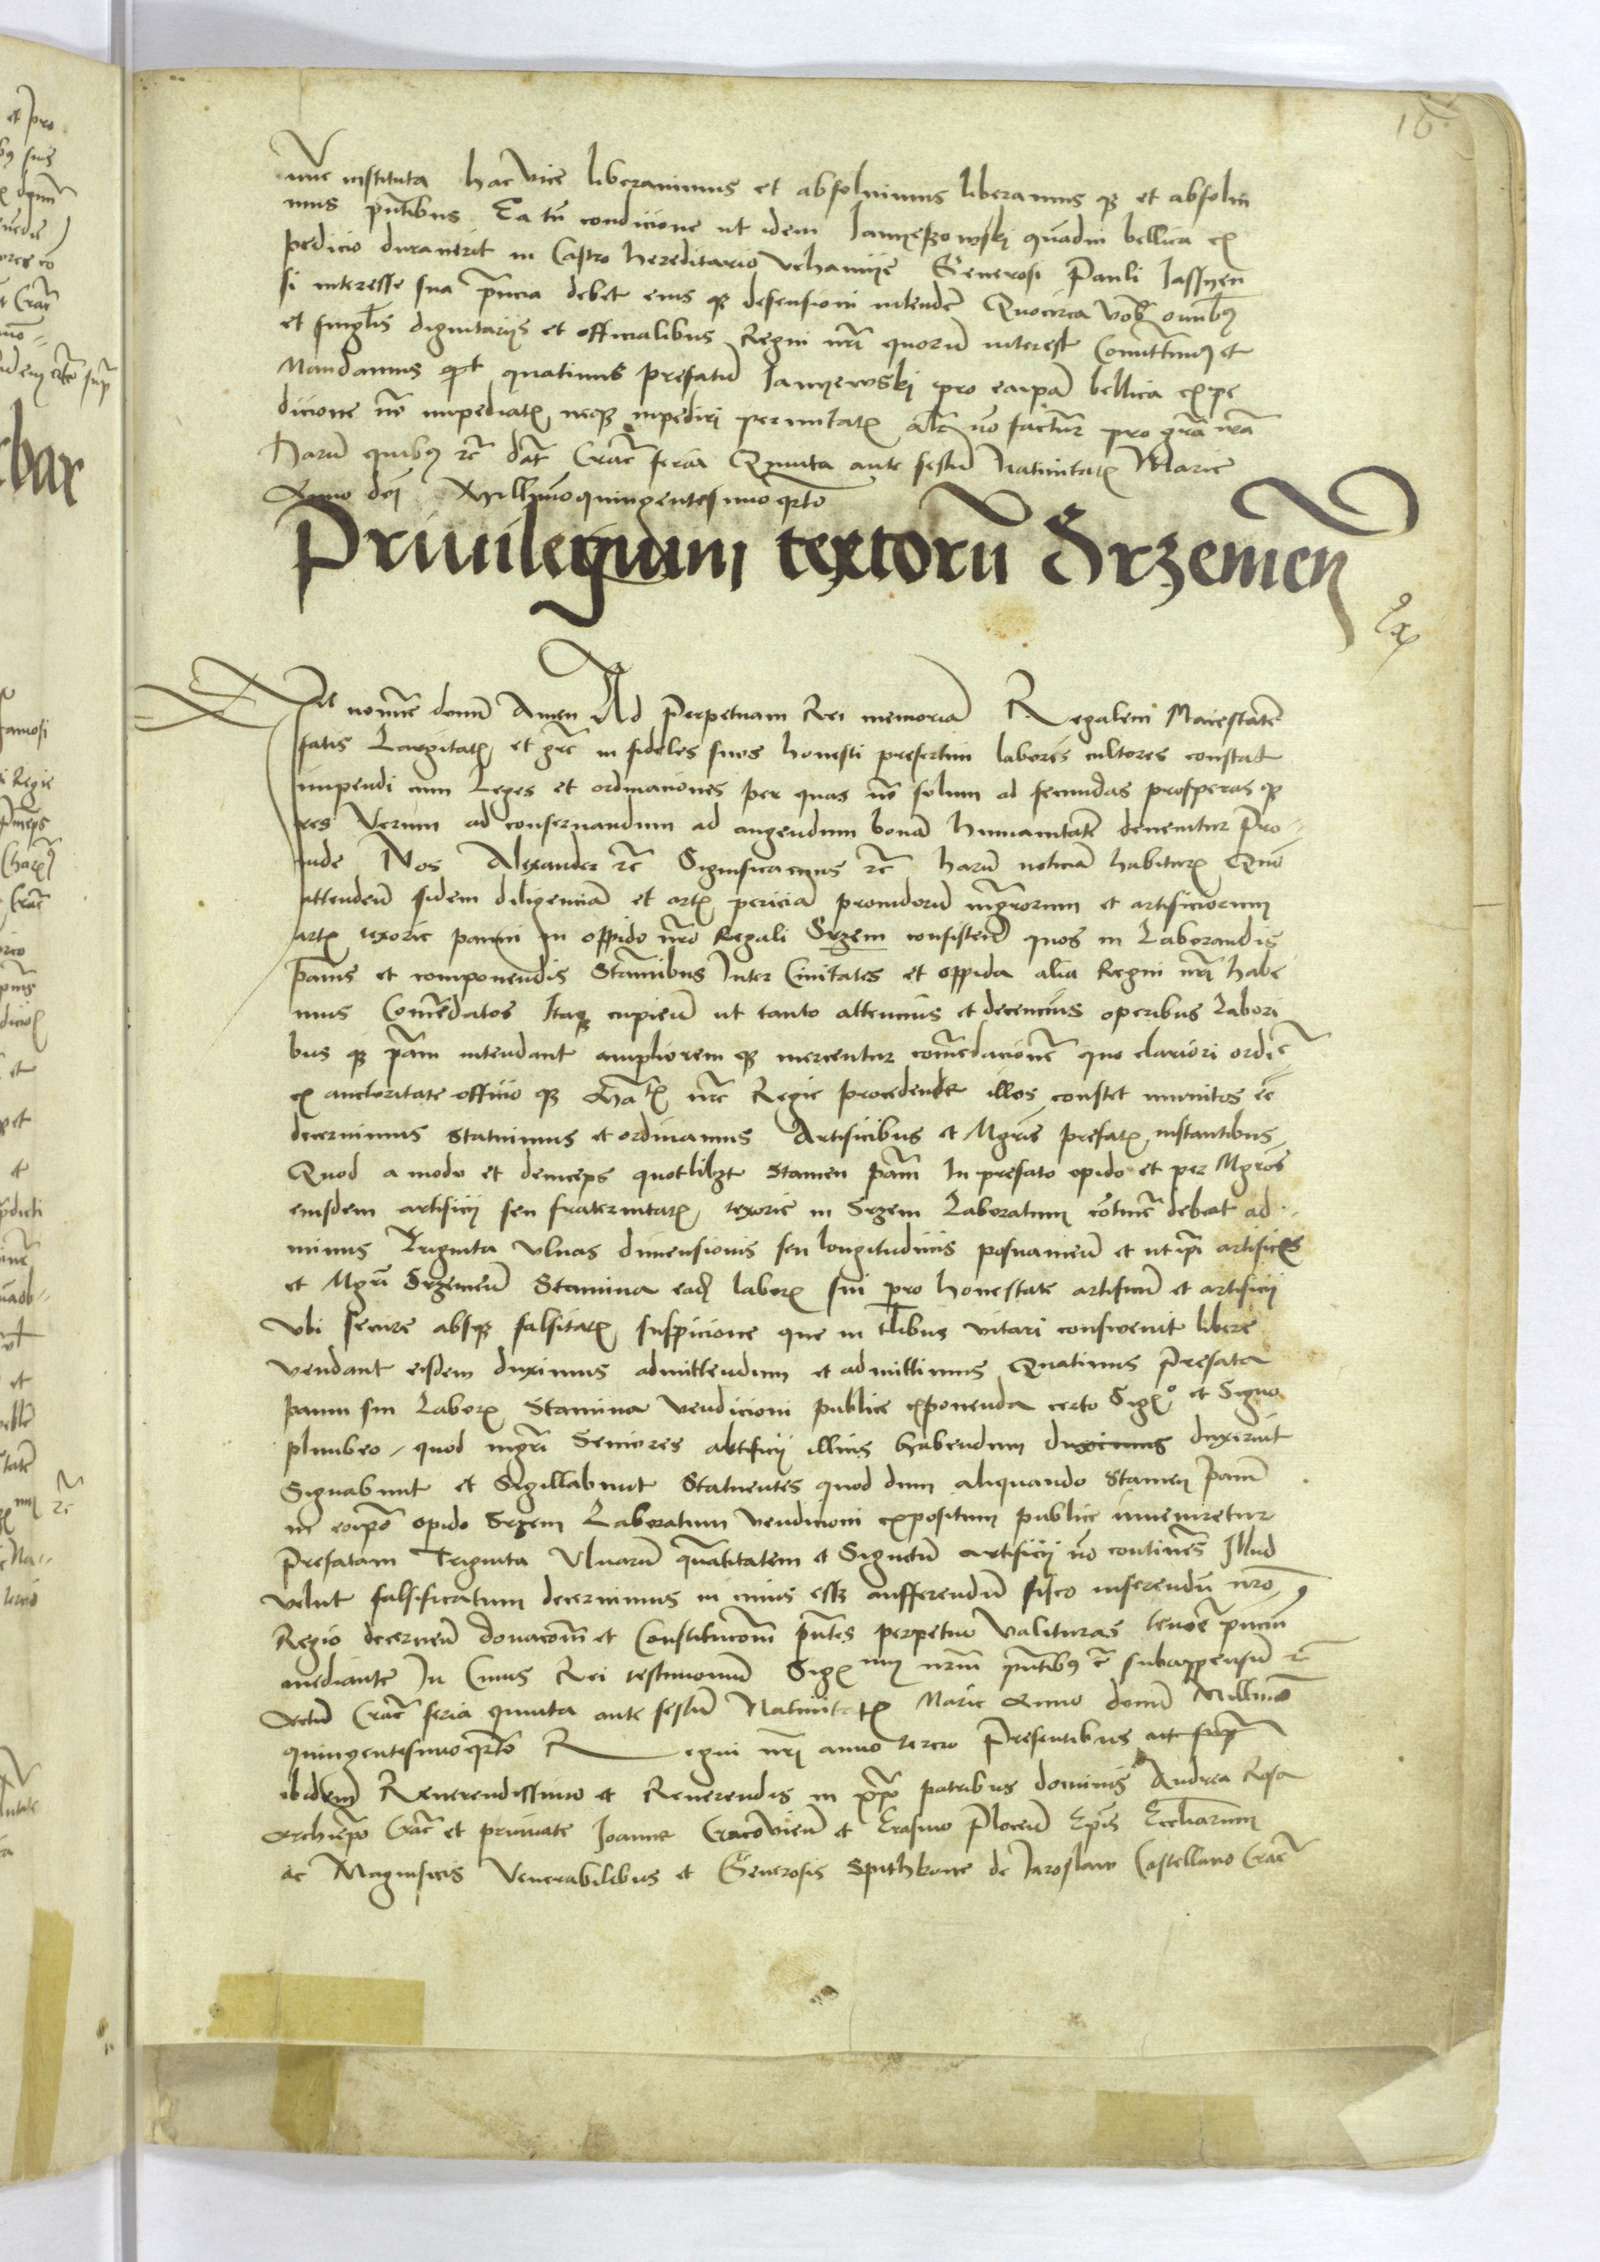 16
nunc instituta hac vice liberavimus et absolvimus liberamus qȝ et absolvi
mus pntibus Ea tn condicione ut idem Iamyeszowski quadiu bellica ex
pedicio duraverit in Castro hereditario Uchanye Generosi Pauli Iassyen
si interesse sua pncia debet eius qȝ defensioni intendere Quocirca vobis omnibȝ
et singlis dignitariis et officialibus Regni nri quorum interest Comittimȝ et
Mandamus qt quatinus prefatum Iamyewski pro eaipa bellica expe
dicione no impediatis neqȝ impediri permittatis alr no factur pro gra nra
Harum quibȝ rc dat Crac feria Quinta ante festum Nativitatis Marie
Anno dni Millimoquingentesimoqrto
Privilegium textorum Srzemen
In nomine domini Amen Ad Perpetuam Rei memoriam Regalem Maiestatem
satis Largitatis et gre in fideles suos honesti presertim laboris cultores constat
impendi cum Leges et ordinaciones per quas no solum ad secundas prosperas qȝ
res Verum ad conservandum ad augendum bonam humanitatem devenitur Pro
inde Nos Alexander rc Significamus rc harum noticiam habituris Quo
attenden fidem diligenciam et artis periciam providorum mgrorum et artificiorum
artis texorie panni in oppido nro Regali Srzem consisten quos in Laborandis
pannis et componendis Staminibus Inter Civitates et oppida alia Regni nri habe
mus Comendatos Itaqȝ cupien ut tanto attencius et decencius operibus Labori
bus qȝ pam intendant ampliorem qȝ mereentur comendacionem quo clariori ordine
ex auctoritate officio qȝ Matis nre Regie procedente illos constet munitos ee
decernimus Statuimus et ordinamus Artificibus et Mgris prefatis instantibus
Quod a modo et deinceps quotlibet Stamen pam In prefato opido et per Mgros
eiusdem artificii seu fraternitatis texorie in Srzem Laboratum continere debeat ad
minus Triginta Ulnas dimensionis seu longitudinis posnanien et ut ipi artifices
et Mgri Srzemen Stamina eadem laboris sui pro honestate artificum et artificii
Ubi secure absqȝ falsitatis suspicione que in tlibus vitari consuevit libere
vendant eisdem duximus admittendum et admittimus Quatinus Prefata
panni sui Laboris Stamina vendicioni publice exponenda certo Sigo et Signo
plumbeo quod mgri Seniores artificii illius habendum duximus duxerint
Signabunt et Sigillabunt Statuentes quod dum aliquando Stamen pam
in eoipo opido Srzem Laboratum vendicioni expositum publice inveniretur
Prefatam Triginta Ulnarum quantitatem et Signetum artificii no continens Illud
velut falsificatum decernimus in eius esse aufferendum fisco inserendum nro
Regio decernen donacom et Constitucom pntes perpetue Valituras tenore pncium
mediante In Cuius Rei testimonium Sigillum nrm pntibȝ e subappensum rc
Actum Crac feria quinta ante festum Nativitatis Marie Anno domini Millimo
quingentesimoqrto Regni nri anno tercio Presentibus
ibidem Reverendissimo et Reverendis in xpo patribus dominis Andrea Rosa
Archiepo Crac et primate Joanne Cracovien et Erasmo Plocen Epis Eccliarum
ac Magnificis Venerabilibus et Generosis Spithkone de Iaroslaw Castellano Crac